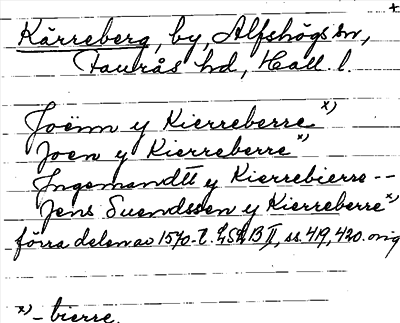 +
Kärreberg, by, Alfshögs sn,
Faurås hd, Hall. l.
Joënn y Kierreberre x)
Joen y Kierreberre x)
Ingemandtt y Kierrebierre --
Jens Suendssen y Kierreberre x)
förra delen av 1570-t. ÄSK 13 II, ss. 419, 420. orig
x) -bierre.